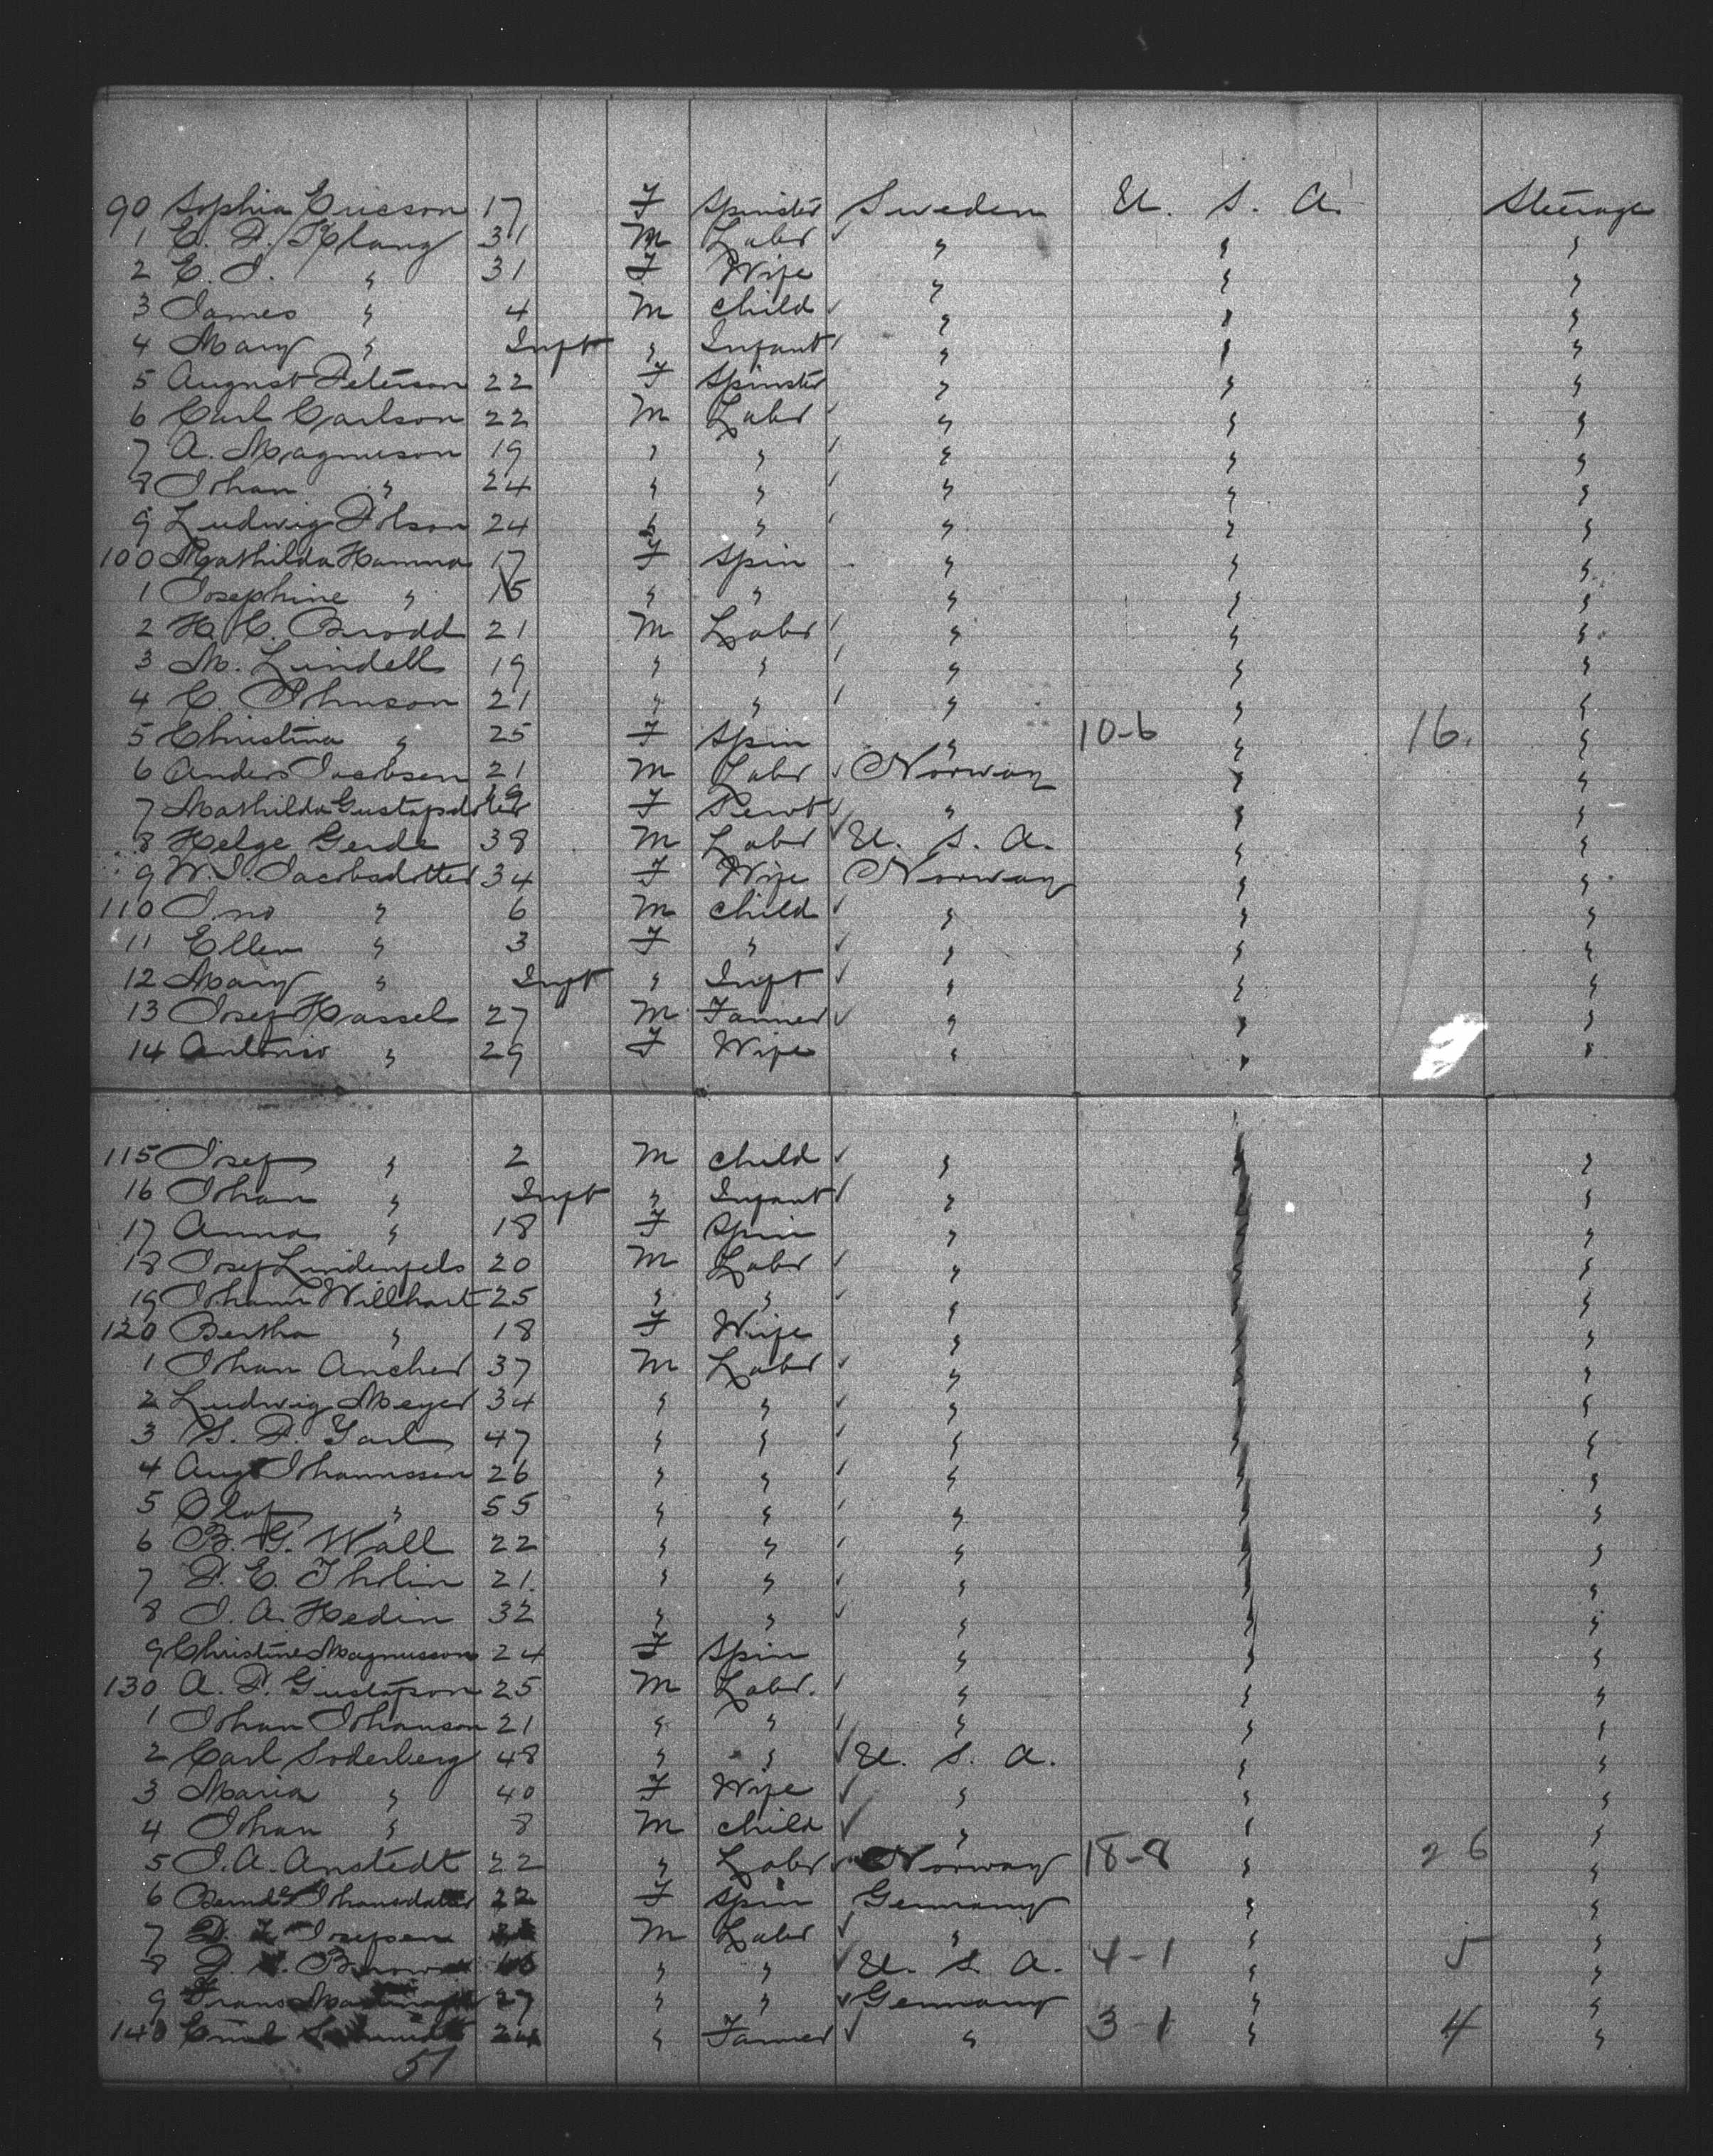 90 Sophia Ericson 17 F Spinster Sweden U. S. A. Steerage
1 C. F. Klang 31 M Labr ✓ " " "
2 E. J. " 31 F Wife " " "
3 James " 4 M Child ✓ " " "
4 Mary " Inft " Infant ✓ " " "
5 August Peterson 22 F Spinster " " "
6 Carl Carlson 22 M Labr ✓ " " "
7 A. Magnuson 19 " " ✓ " " "
8 Johan " 24 " " ✓ " " "
9 Ludwig Polson 24 " " ✓ " " "
100 Mathilda Hamma 17 F Spin " " "
1 Josephine " 15 " " " " "
2 H. C. Brodd 21 M Labr ✓ " " "
3 M. Lindell 19 " " ✓ " " "
4 C. Johnson 21 " " ✓ " " "
5 Christina " 25 F Spin " 10-6 " 16. "
6 Anders Jacobsen 21 M Labr ✓ Norway " "
7 Mathilda Gustafsdotter 19 F Servt ✓ " " "
8 Helge Gerde 38 M Labr ✓ U. S. A. " "
9 W. I. Jacobsdotter 34 F Wife Norway " "
110 Jno " 6 M Child ✓ " " "
11 Ellen " 3 F " ✓ " " "
12 Mary " Inft " Inft ✓ " " "
13 Josef Hassel 27 M Farmer ✓ " " "
14 Antonio " 29 F Wife " " "
115 Josef " 2 M Child ✓ " " "
16 Johan " Inft " Infant ✓ " " "
17 Anna " 18 F Spin " " "
18 Josef Lindenfels 20 M Labr ✓ " " "
19 Johann Willhart 25 " " ✓ " " "
120 Bertha " 18 F Wife " " "
1 Johan Ancher 37 M Labr ✓ " " "
2 Ludwig Meyer 34 " " ✓ " " "
3 S. P. Garl 47 " " ✓ " " "
4 Aug Johannssen 26 " " ✓ " " "
5 Olof " 55 " " ✓ " " "
6 B. G. Wall 22 " " ✓ " " "
7 P. E. Tholin 21. " " ✓ " " "
8 J. A. Hedin 32 " " ✓ " " "
9 Christine Magnusson 24 F Spin " " "
130 A. P. Gustafson 25 M Labr. ✓ " " "
1 Johan Johanson 21 " " ✓ " " "
2 Carl Soderberg 48 " " ✓ U. S. A. " "
3 Maria " 40 F Wife ✓ " " "
4 Johan " 8 M Child ✓ " " "
5 J. A. Anstedt 22 " Labr ✓ Norway 18-8 " 26 "
6 Johansdatter 22 F Spin Germany " "
7 Josefsen M Labr ✓ " " "
8 " " ✓ U. S. A. 4-1 " 5 "
9 Frans 27 " " ✓ Germany " "
140 Emil 24 " Farmer ✓ " 3-1 " 4 "
51